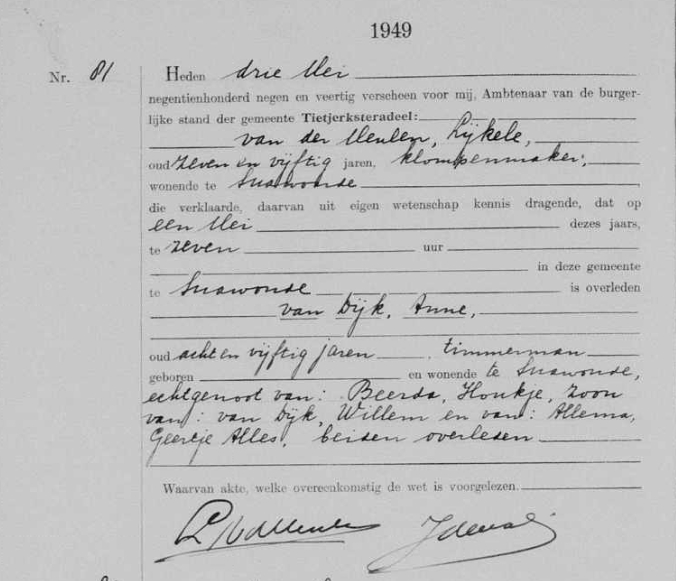 1949
Nr. 81
Heden drie Mei
negentienhonderd negen en veertig verscheen voor mij, Ambtenaar van de burger-
lijke stand der gemeente Tietjerksteradeel:
van der Meulen, Lijkele,
oud zeven en vijftig jaren, klompenmaker,
wonende te Suawoude
die verklaarde, daarvan uit eigen wetenschap kennis dragende, dat op
een Mei dezes jaars,
te zeven uur
in deze gemeente
te Suawoude is overleden
van Dijk, Anne,
oud acht en vijftig jaren, timmerman
geboren en wonende te Suawoude,
echtgenoot van: Beerda, Houkje, zoon
van: van Dijk, Willem en van: Allema,
Geertje Alles, beiden overleden
Waarvan akte, welke overeenkomstig de wet is voorgelezen.